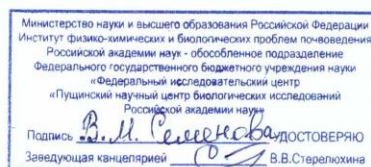 Министерство науки и высшего образования Российской Федерации
Институт физико-химических и биологических проблем почвоведения
Российской академии наук - обособленное подразделение
Федерального государственного бюджетного учреждения науки
«Федеральный исследовательский центр
«Пущинский научный центр биологических исследований
Российской академии наук»
Подпись В.М. Семенова УДОСТОВЕРЯЮ
Заведующая канцелярией В.В.Стерелюхина